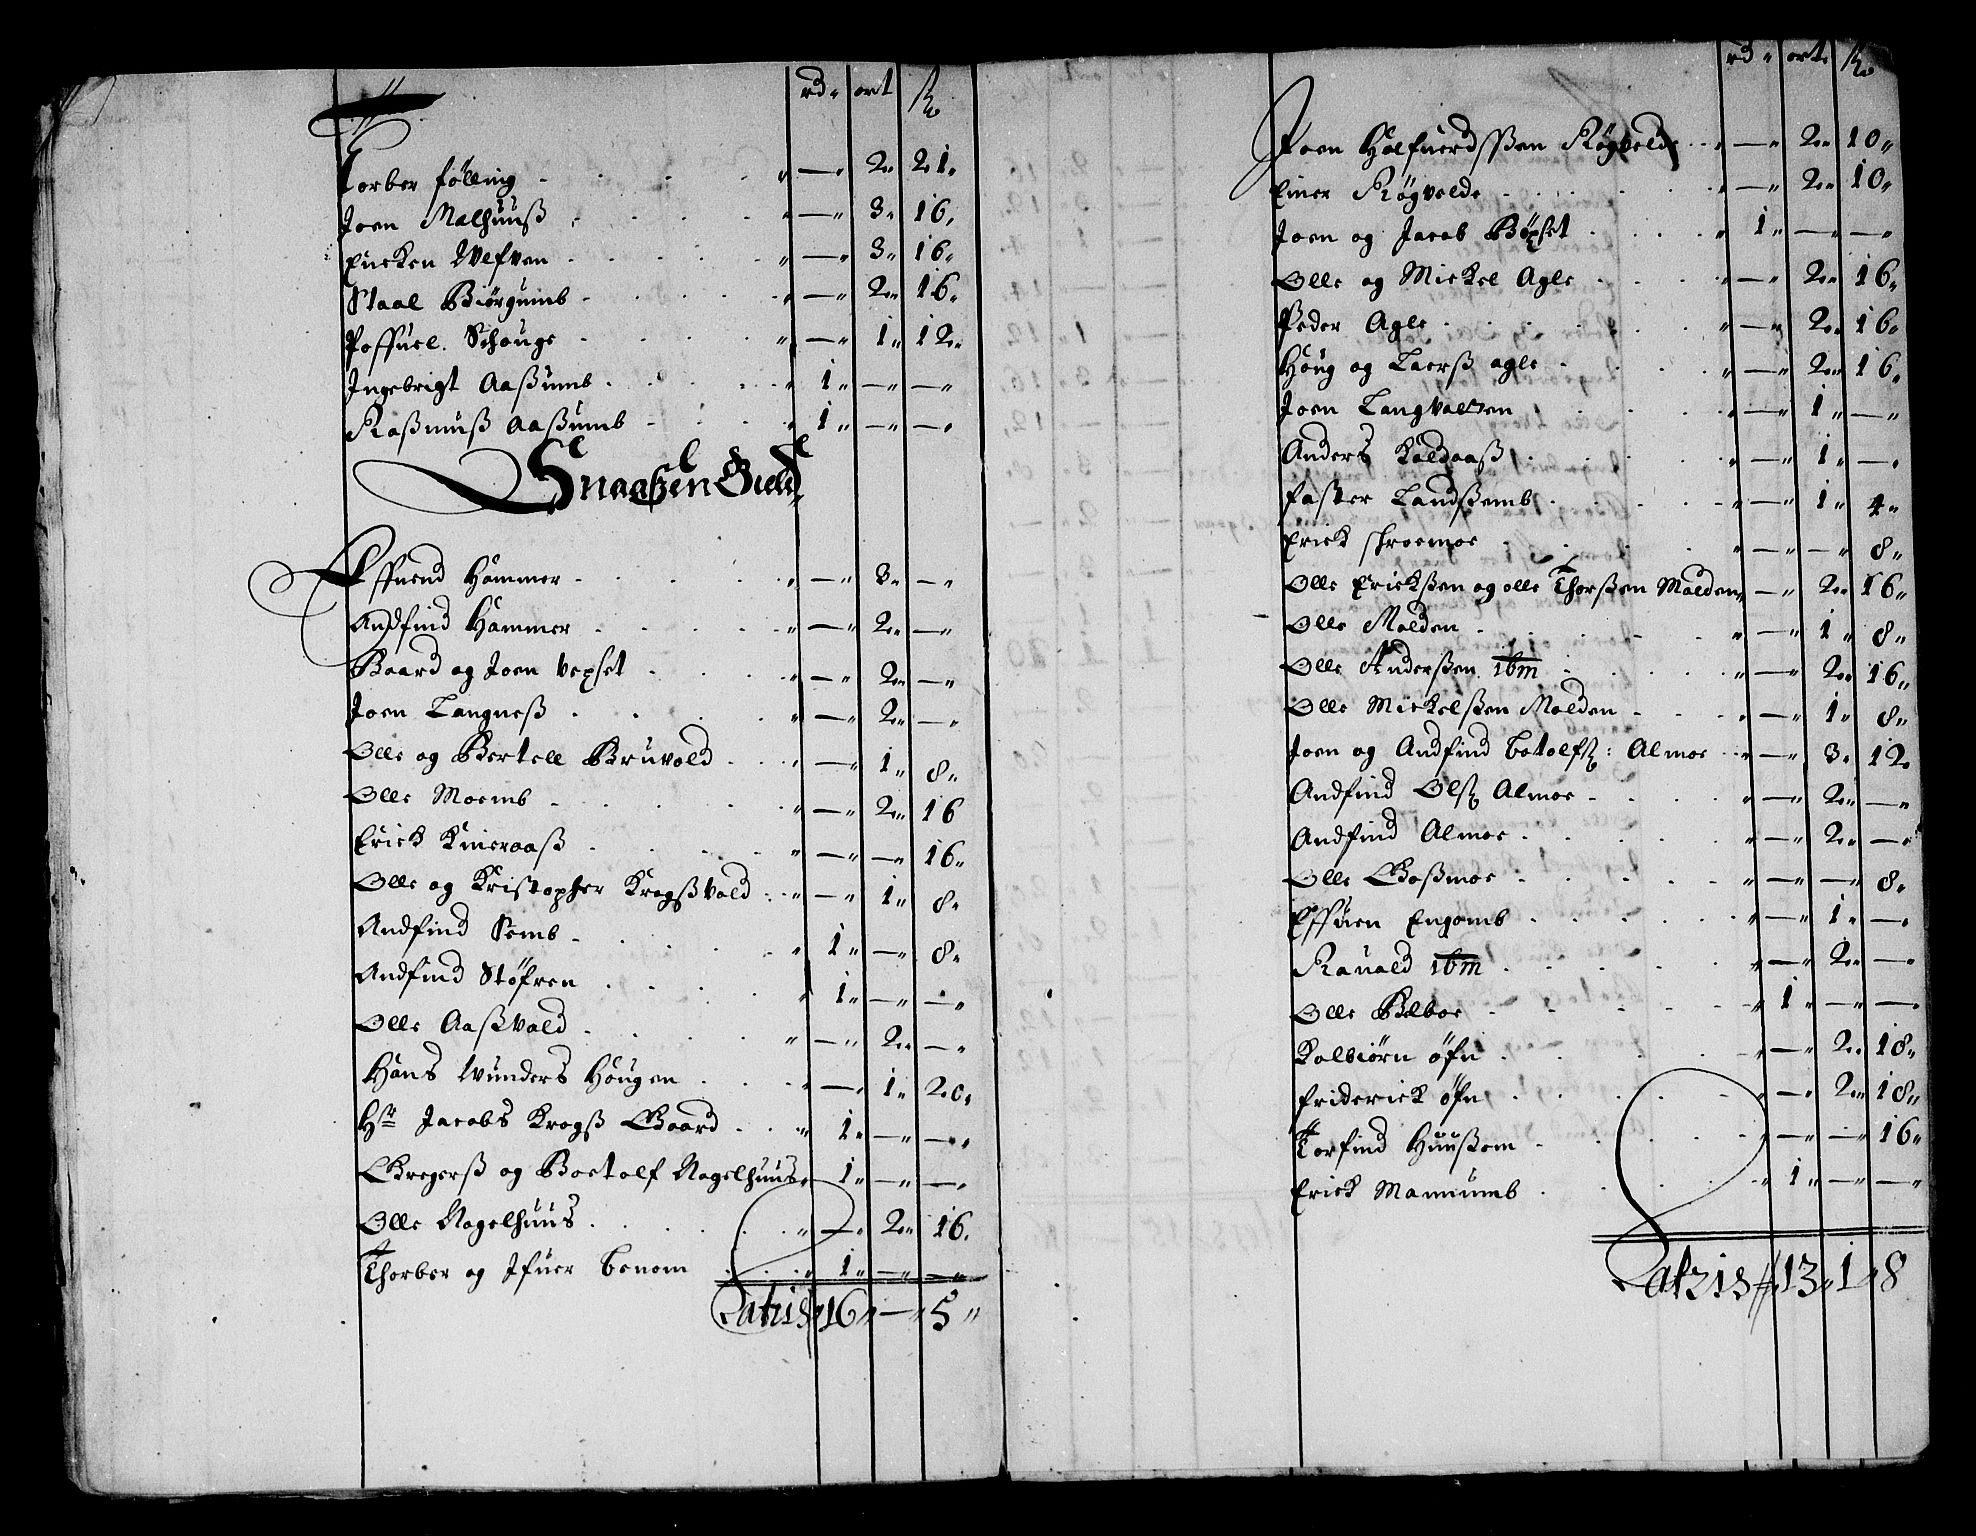 rd " ort ß
Torber følling " — " 2 " 21 "
Joen Malhuuß " — " 3 " 16 "
Encken Welfven " — " 3 " 16 "
Staal Biørguimb " — " 2 " 16 "
Poffuel Schauge " — " 1 " 12 "
Ingebrigt Aaßumb " 1 " — " — "
Raßmuß Aaßumb " 1 " — " — "
Snaaßen Gield
Effuend Hammer " — " 3 " — "
Andfind Hammer " — " 2 " — "
Baard og Joen Vexset " — " 2 " — "
Joen Langneß " — " 2 " — "
Olle og Bertell Bruvold " — " 1 " 8 "
Olle Moemb " — " 2 " 16
Erick Knieraaß " — " — " 16 "
Olle og Kristopher Krogßvald " — " 1 " 8 "
Andfind Semb " 1 " — " 8 "
Andfind Støfren " 1 " — " — "
Olle Aaßvald " — " 2 " — "
Hans Wunders Hougen " — " 1 " 20 "
Hr Jacobs Krogß Gaard " 1 " — " — "
Gregerß og Boetolf Nagelhuus " 1 " — " — "
Olle Nagelhuus " — " 2 " 16 "
Thorber og Ifuer Benom " 1 " — " — "
Latris " 16 " — " 5 "
rd " ort " ß
Joen Halfuerdssen Røgvelde " — " 2 " 10 "
Einer Røgvelde " — " 2 " 10 "
Joen og Jacob Bøxset " 1 " — " — "
Olle og Mickel Agle " — " 2 " 16 "
Peder Agle " — " 2 " 16 "
Houg og Laerß agle " — " 2 " 16 "
Joen Langvatzen " — " 1 " — "
Anders Kaldaaß " — " 1 " — "
faster Landßemb " — " 1 " 4 "
Erick schroemoe " — " — " 8 "
Olle Erickßen og olle Thorßen Malden " — " 2 " 16 "
Olle Malden " — " 1 " 8 "
Olle Anderßen ibm " — " 2 " 16 "
Olle Mickelßen Malden " — " 1 " 8 "
Joen og Andfind botolfß: Almoe " — " 3 " 12 "
Andfind Olß Almoe " — " 2 " — "
Andfind Almoe " — " 2 " — "
Olle Goßmoe " — " — " 8 "
Effuen Engomb " — " 1 " — "
Rauald ibm " — " 2 " — "
Olle Belboe " 1 " — " — "
Kolbiørn øfn " — " 2 " 18 "
friderick øfn " — " 2 " 18 "
Torfind Huußem " — " — " 16 "
Erick Mamumb " 1 " — " — "
Latzis " 13 " 1 " 8